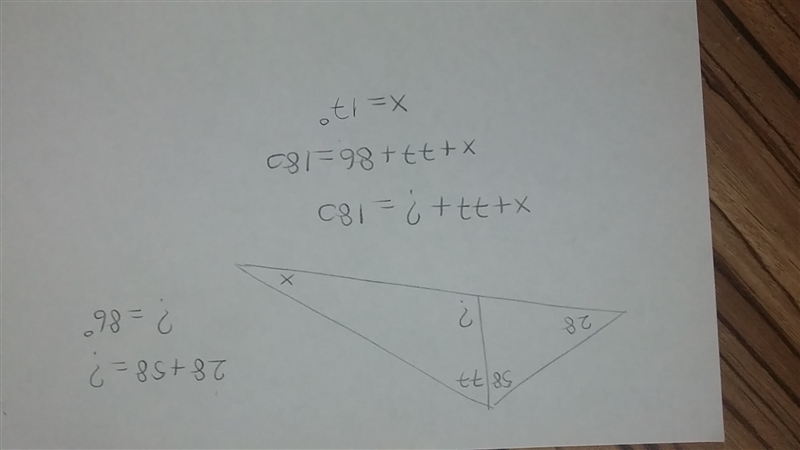 58 77
28 ? x
28+58=?
?=86°
x+77+?=180
x+77+86=180
x=17°